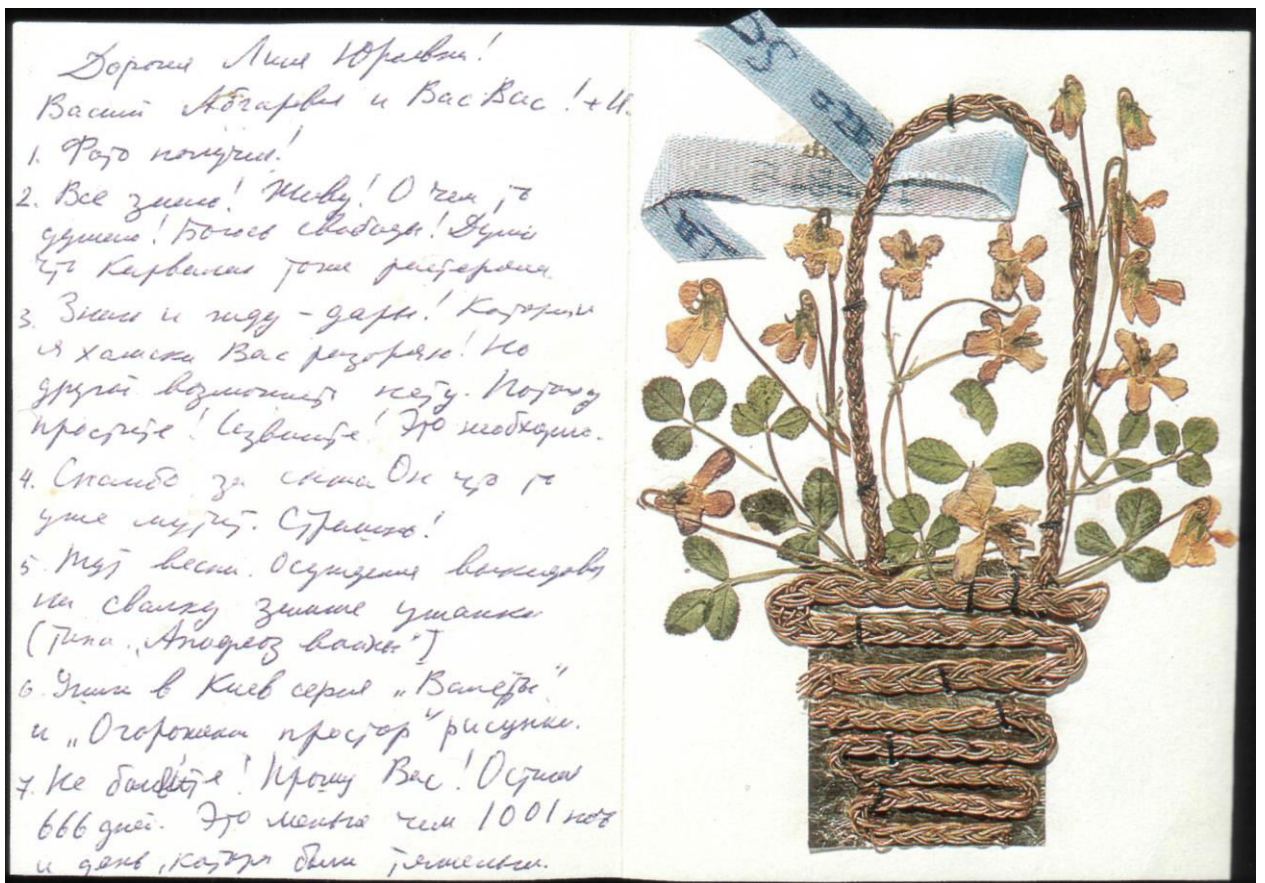 Дорогая Лиля Юрьевна!
Василий Абгарович и Вас. Вас! + И.
1. Фото получил!
2. Все знаю! Живу! О чем то
думаю! Боюсь свободы! Думаю
что Карвалан тоже растерялся
3. Знаю и жду – дары! Которыми
я хамски Вас разоряю! Но
другой возможности нету. Потому
простите! Созвоните! Это необходимо.
4. Спасибо за сына. Он что то
уже мутит. Страшно!
5. Тут весна. Осужденные выкидывают
на свалку зимние ушанки
(типа „Апофеоз войны")
6. Ушла в Киев серия „Вальеты"
и „Огорожений простор" рисунки.
7. Не болейте! Прошу Вас! Осталось
666 дней. Это меньше чем 1001 ночь
и день, которые были тяжелыми.